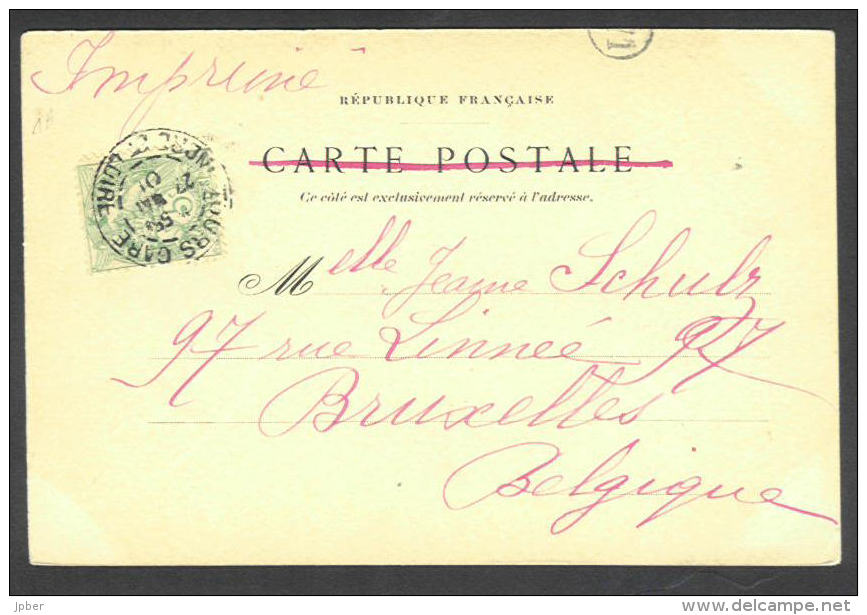 Imprimé
RÉPUBLIQUE FRANÇAISE
CARTE POSTALE
Ce côté est exclusivement réservé à l'adresse.
TOURS GARE INDRE ET LOIRE
Melle Jeanne Schulz
97 rue Linneé 97
Bruxelles
Belgique
jpber
delcampe.net